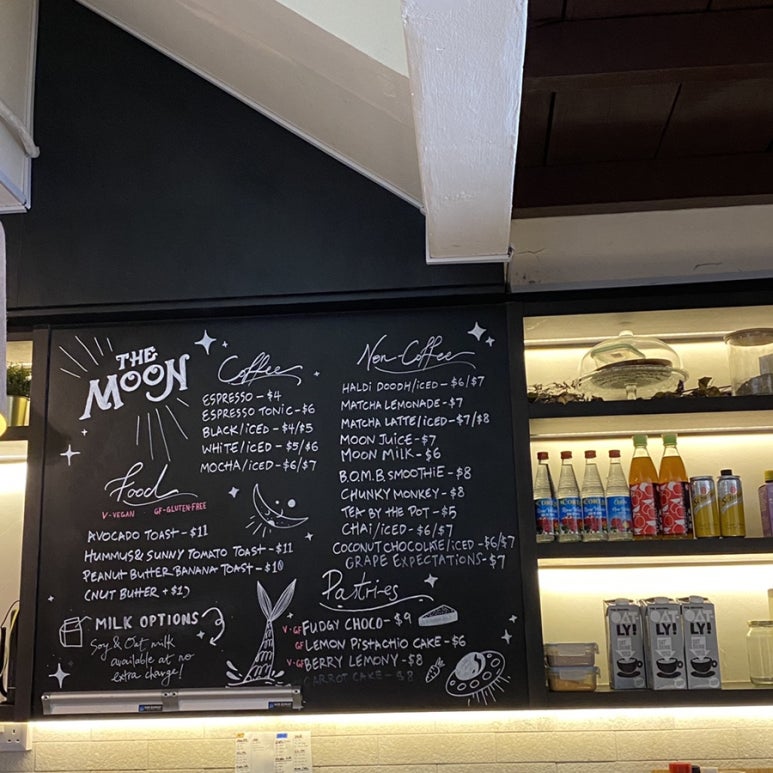 THE
MOON
Coffee
ESPRESSO - $4
ESPRESSO TONIC - $6
BLACK/ICED - $4/$5
WHITE/ICED - $5/$6
MOCHA/ICED - $6/$7
Food
V-VEGAN GF-GLUTEN-FREE
AVOCADO TOAST - $11
HUMMUS & SUNNY TOMATO TOAST - $11
PEANUT BUTTER BANANA TOAST - $10
(NUT BUTTER + $1)
MILK OPTIONS
Soy & Oat milk
available at no
extra charge!
Non-Coffee
HALDI DOODH/ICED - $6/$7
MATCHA LEMONADE - $7
MATCHA LATTE/ICED - $7/$8
MOON JUICE - $7
MOON MILK - $6
B.O.M.B SMOOTHIE - $8
CHUNKY MONKEY - $8
TEA BY THE POT - $5
CHAI/ICED - $6/$7
COCONUT CHOCOLATE/ICED - $6/$7
GRAPE EXPECTATIONS - $7
Pastries
V-GF FUDGY CHOCO - $9
GF LEMON PISTACHIO CAKE - $6
V-GF BERRY LEMONY - $8
CARROT CAKE - $8
OAT
LY!
OAT
LY!
OAT
LY!